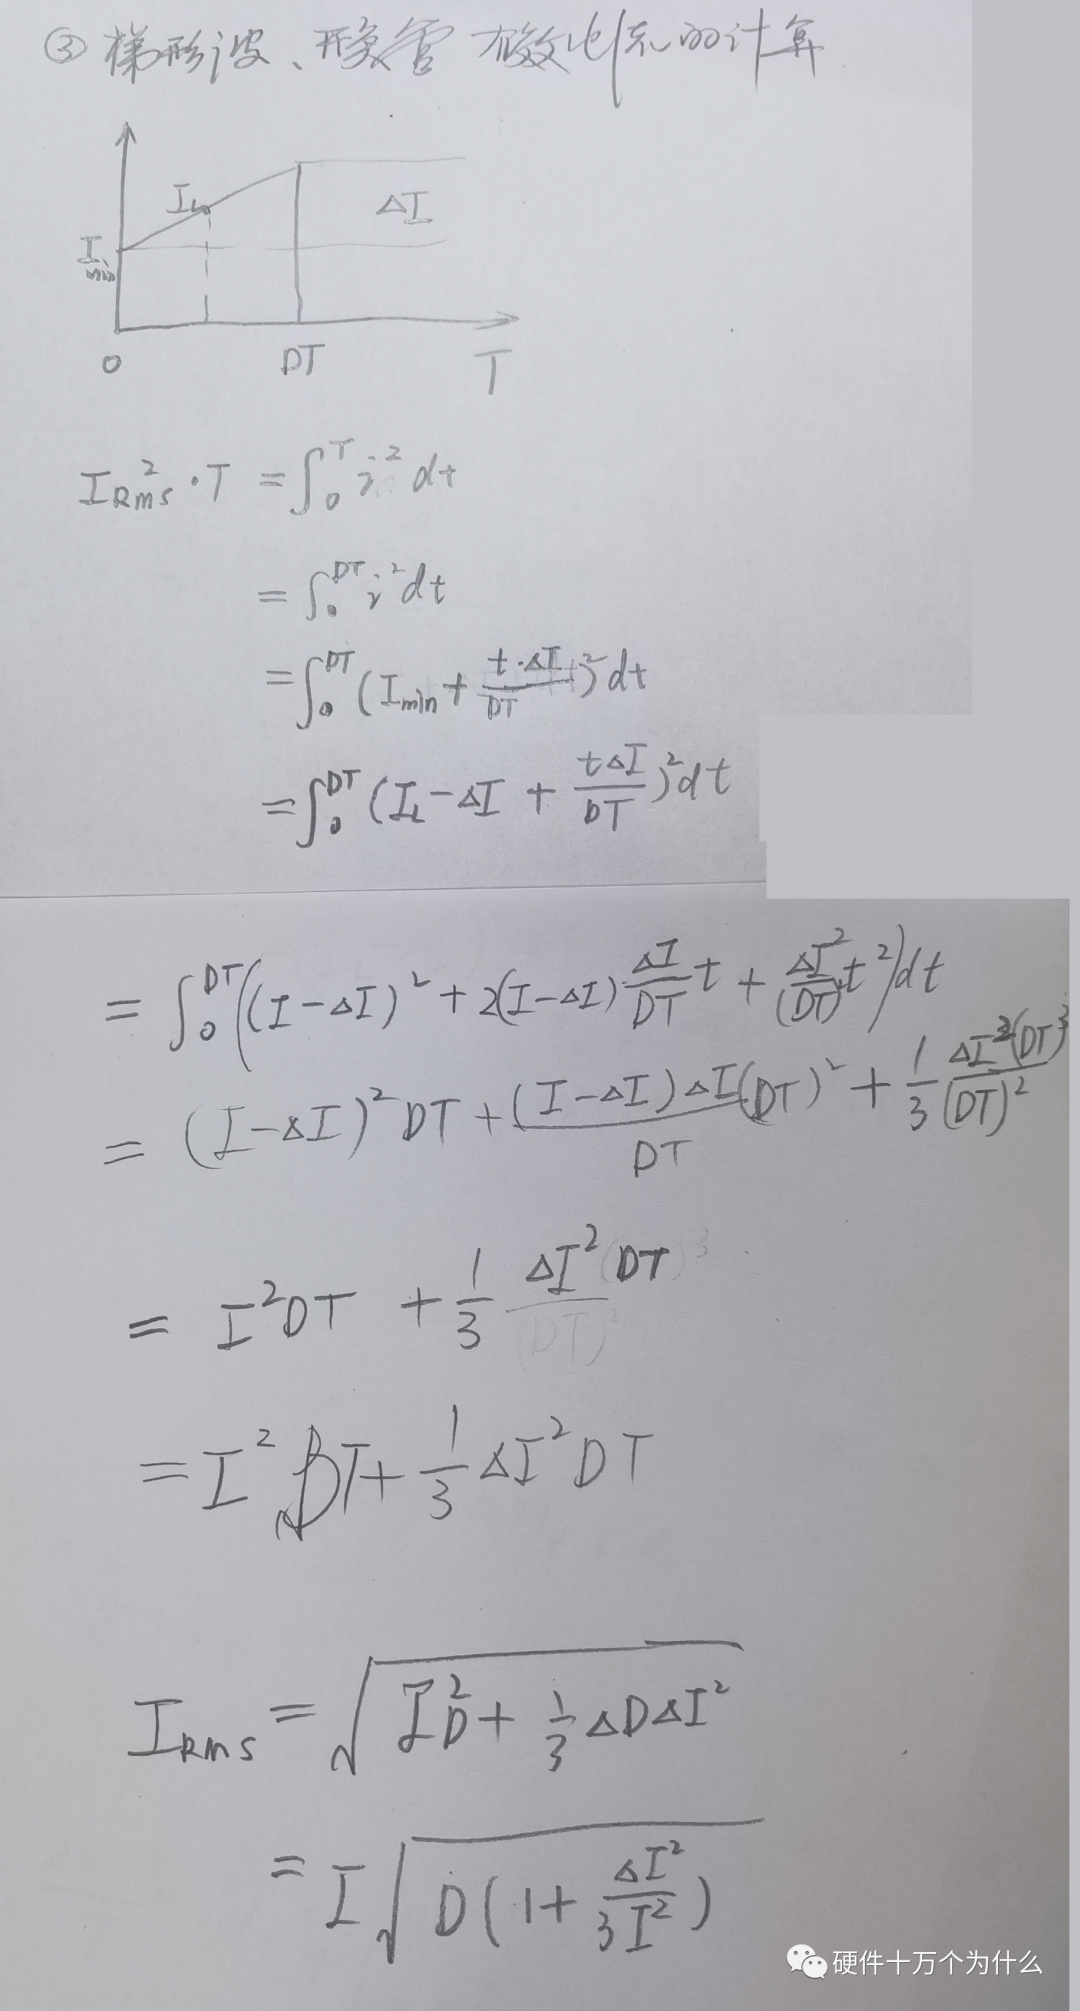 ③ 梯形波、开关管 有效电流的计算
I_L
ΔI
I_min
0 DT T
I_RMS² · T = ∫₀ᵀ i² dt
= ∫₀^DT i² dt
= ∫₀^DT (I_min + t·ΔI/DT)² dt
= ∫₀^DT (I_L - ΔI + tΔI/DT)² dt
= ∫₀^DT ((I-ΔI)² + 2(I-ΔI) ΔI/DT t + ΔI²/(DT)² t²) dt
= (I-ΔI)² DT + (I-ΔI)ΔI(DT)²/DT + 1/3 ΔI²(DT)³/(DT)²
= I²DT + 1/3 ΔI² DT
= I² DT + 1/3 ΔI² DT
I_RMS = √(I²D + 1/3 ΔDΔI²)
= I√(D(1 + ΔI²/3I²))
硬件十万个为什么